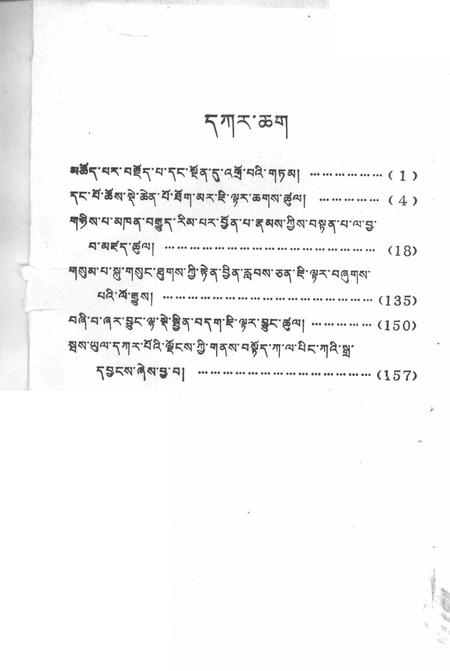 དཀར་ཆག
མཆོད་པར་བརྗོད་པ་དང་སྔོན་དུ་འགྲོ་བའི་གཏམ། ……………… ( 1 )
དང་པོ་ཆོས་སྡེ་ཆེན་པོ་ཐོག་མར་ཇི་ལྟར་ཆགས་ཚུལ། …………… ( 4 )
གཉིས་པ་མཁན་བརྒྱུད་རིམ་པར་བྱོན་པ་རྣམས་ཀྱིས་བསྟན་པ་ལ་བྱ་
བ་མཛད་ཚུལ། ………………………………………… (18)
གསུམ་པ་སྐུ་གསུང་ཐུགས་ཀྱི་རྟེན་བྱིན་རླབས་ཅན་ཇི་ལྟར་བཞུགས་
པའི་ལོ་རྒྱུས། ………………………………………… (135)
བཞི་བ་ཞར་བྱུང་ལྷ་སྡེ་སྦྱིན་བདག་ཇི་ལྟར་བྱུང་ཚུལ། …………… (150)
སྦས་ཡུལ་དཀར་པོའི་ལྗོངས་ཀྱི་གནས་བསྟོད་ཀ་ལ་པིང་ཀའི་སྒྲ་
དབྱངས་ཞེས་བྱ་བ། ………………………………… (157)